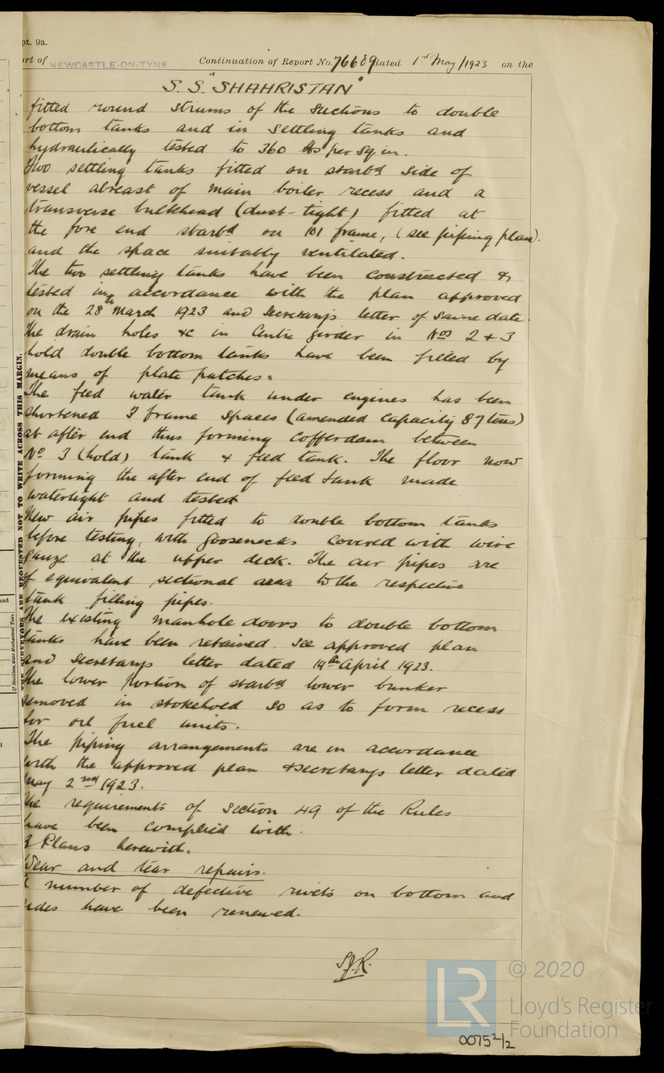 pt. 9a.
rt of NEWCASTLE-ON-TYNE Continuation of Report No. 76609 dated 1st May/1923 on the
S.S. "SHAHRISTAN"
fitted round strums of the suctions to double
bottom tanks and in settling tanks and
hydraulically tested to 360 lbs per sq in.
Two settling tanks fitted on starbd side of
vessel abreast of main boiler recess and a
transverse bulkhead (dust-tight) fitted at
the fore end starbd on 101 frame, (see piping plan).
and the space suitably ventilated.
The two settling tanks have been constructed &
tested in accordance with the plan approved
on the 28th March 1923 and Secretary's letter of same date.
The drain holes &c in Centre girder in Nos 2 & 3
hold double bottom tanks have been filled by
means of plate patches.
The feed water tank under engines has been
shortened 3 frame spaces (amended capacity 87 tons)
at after end thus forming cofferdam between
No 3 (hold) tank & feed tank. The floor now
forming the after end of feed tank made
watertight and tested
New air pipes fitted to double bottom tanks
before testing, with goosenecks covered with wire
gauze at the upper deck. The air pipes are
of equivalent sectional area to the respective
tank filling pipes.
The existing manhole doors to double bottom
tanks have been retained. See approved plan
and Secretarys letter dated 14th April 1923.
The lower portion of starbd lower bunker
removed in stokehold so as to form recess
for oil fuel units.
The piping arrangements are in accordance
with the approved plan & secretarys letter dated
May 2nd 1923.
The requirements of Section 49 of the Rules
have been complied with.
Plans herewith.
Wear and tear repairs.
A number of defective rivets on bottom and
sides have been renewed.
THE SURVEYORS ARE REQUESTED NOT TO WRITE ACROSS THIS MARGIN.
LR
© 2020
Lloyd's Register
Foundation
00752/2